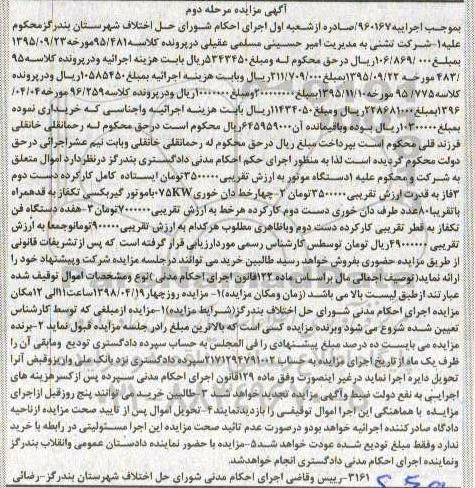 آگهی مزایده مرحله دوم
بموجب اجراییه ۹۶۰۱۶۷/صادره ازشعبه اول اجرای احکام شورای حل اختلاف شهرستان بندرگزمحکوم
علیه۱-شرکت تشنی به مدیریت امیر حسینی مسلمی عقیلی درپرونده کلاسه۹۵/۴۸۱مورخه ۱۳۹۵/۰۹/۲۳
بمبلغ ۱۰۶/۸۶۹/۰۰۰ریال در حق محکوم له ومبلغ۵۳۴۳۴۵۰ریال بابت هزینه اجرائیه ودرپرونده کلاسه۹۵
/۴۸۳مورخه ۱۳۹۵/۰۹/۲۳بمبلغ۲۱۱/۷۰۹/۰۰۰ریال وبابت هزینه اجرائیه بمبلغ۱۰۵۸۵۴۵۰ریال ودرپرونده
کلاسه۹۵/۷۷۵ مورخه ۱۳۹۵/۱۱/۱۰بمبلغ۲۰۰۰۰۰۰۰ومبلغ۱۰۰۰۰۰۰ریال ودرپرونده کلاسه۹۶/۲۵۹مورخه۰۴/۰۴/
۱۳۹۶بمبلغ۲۲۸۶۸۱۰۰۰ریال ومبلغ۱۱۴۳۴۰۵۰ریال بابت هزینه اجرائیه واجناسی که خریداری نموده
بمبلغ۱۰۳۰۰۰۰۰ریال بوده وباقیمانده آن۶۴۵۹۵۹۰۰۰ریال محکوم است درحق محکوم له رحمانقلی خانقلی
فرزند قلی محکوم است بپرداخت مبلغ ریال در حق محکوم له رحمانقلی خانقلی وبابت نیم عشراجرائی درحق
دولت محکوم گردیده است لذا به منظور اجرای حکم احکام مدنی دادگستری بندرگز درنظردارد اموال متعلق
به شرکت و محکوم علیه ۱دستگاه موتور به ارزش تقریبی ۳۵۰۰۰۰۰تومان ایستاده کامل کارکرده دست دوم
۳فاز به قدرت ارزش تقریبی ۳۵۰۰۰۰۰تومان ۲-چهارخط دان خوری۰۷۵KWباموتور گیربکسی تکفاز به قدهمراه
باتقریبا۸۰عدد ظرف دان خوری دست دوم کارکرده هرخط به ارزش تقریبی۷۰۰۰۰۰۰تومان۳-هفده دستگاه فن
تکفاز به قطر تقریبی کارکرده دست دوم وباظاهری مطلوب هرکدام به ارزش تقریبی۹۰۰۰۰۰تومانوجمعا به ارزش
تقریبی۴۹۰۰۰۰۰۰۰ریال تومان توسطس کارشناس رسمی موردارزیابی قرار گرفته است که پس ازتشریفات قانونی
از طریق مزایده حضوری بفروش خواهد رسید طالبین خرید می توانند درجلسه مزایده شرکت وپیشنهاد خود را
ارائه نمایند(توصیف اجمالی مال براساس ماده ۱۲۲قانون اجرای احکام مدنی)نوع ومشخصات اموال توقیف شده
عبارتند ازطبق لیست بالا می باشد (زمان ومکان مزایده)۱-مزایده روزچهار۱۳۹۸/۰۴/۱۹ساعت۱۱الی ۱۲مکان
مزایده اجرای احکام شورای حل اختلاف بندرگز(شرایط مزایده)۱-مزایده ازمبلغی که توسط کارشناس
تعیین شده شروع می شود وبرنده مزایده کسی است که بالاترین مبلغ رادر جلسه مزایده قبول نماید ۲-برنده
مزایده می بایست ده درصد مبلغ پیشنهادی را فی المجلس به حساب سپرده دادگستری تودیع ومابقی آن را
ظرف یک ماه از تاریخ اجرای مزایده به حساب ۲۱۷۱۲۹۴۷۹۱۰۰۲سپرده دادگستری نزد بانک ملی واریزوقبض آنرا
تحویل دایره اجرا نماید درغیر اینصورت وفق ماده ۱۲۹قانون اجرای احکام مدنی سپرده پس ازکسرهزینه های
اجرایی به نفع دولت ضبط وآگهی مزایده تجدید خواهد شد۳-طالبین خرید می توانند پنج روزقبل ازاجرای
مزایده با هماهنگی این اجرا اموال توقیفی را بازدیدنمایند۴-تحویل اموال پس از تأیید صحت مزایده ازناحیه
دادگاه صادرکننده اجرائیه خواهد بودو درصورت عدم تائید صحت مزایده این اجرا مسئولیتی در رابطه با خرید
ندارد وفقط مبلغ تودیع شده عودت خواهد شد۵-مزایده با حضور نماینده دادستان عمومی وانقلاب بندرگز
ونماینده اجرای احکام مدنی دادگستری انجام خواهدشد.
۳۱۶۱-رییس وقاضی اجرای احکام مدنی شورای حل اختلاف شهرستان بندرگز-رضائی